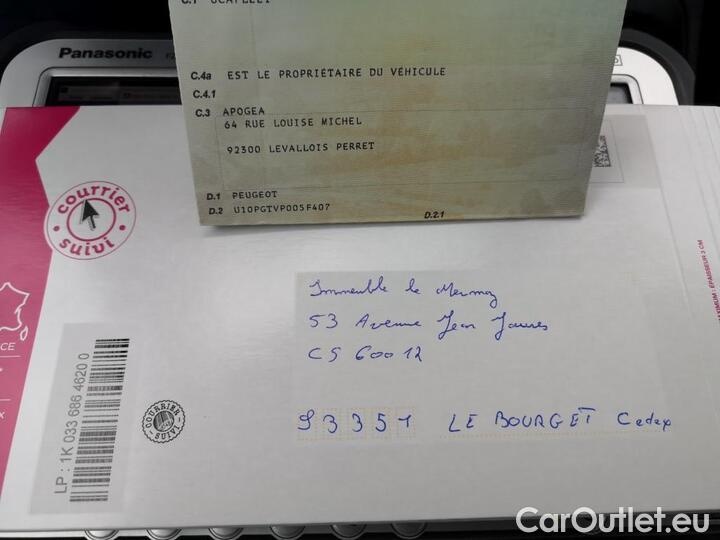 Panasonic
C.4a EST LE PROPRIÉTAIRE DU VÉHICULE
C.4.1
C.3 APOGEA
64 RUE LOUISE MICHEL
92300 LEVALLOIS PERRET
D.1 PEUGEOT
D.2 U10PGTVP005F407
D.2.1
courrier
suivi
Immeuble le Mermoz
53 Avenue Jean Jaures
CS 60012
93351 LE BOURGET Cedex
COURRIER
SUIVI
LP : 1K 033 686 4620 0
MAXIMUM : ÉPAISSEUR 3 CM
CarOutlet.eu